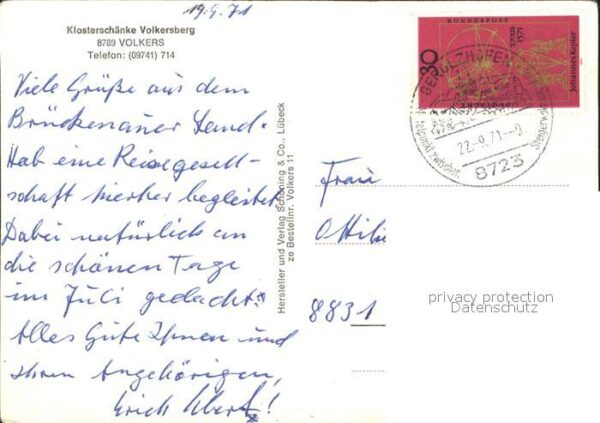 19.9.71
Klosterschänke Volkersberg
8789 VOLKERS
Telefon: (09741) 714
Viele Grüße aus dem
Brückenauer Land.
Hab eine Reisegesell-
schaft hierher begleitet.
Dabei natürlich an
die schönen Tage
im Juli gedacht.
Alles Gute Ihnen und
Ihren Angehörigen,
Erich
Hersteller und Verlag Schöning & Co., Lübeck
ze Bestellnr. Volkers 11
DEUTSCHE BUNDESPOST
30
1571
Johannes Kepler
GEROLZHOFEN
22.-9.71.-9
8723
Frau
Ottilie
8831
privacy protection
Datenschutz